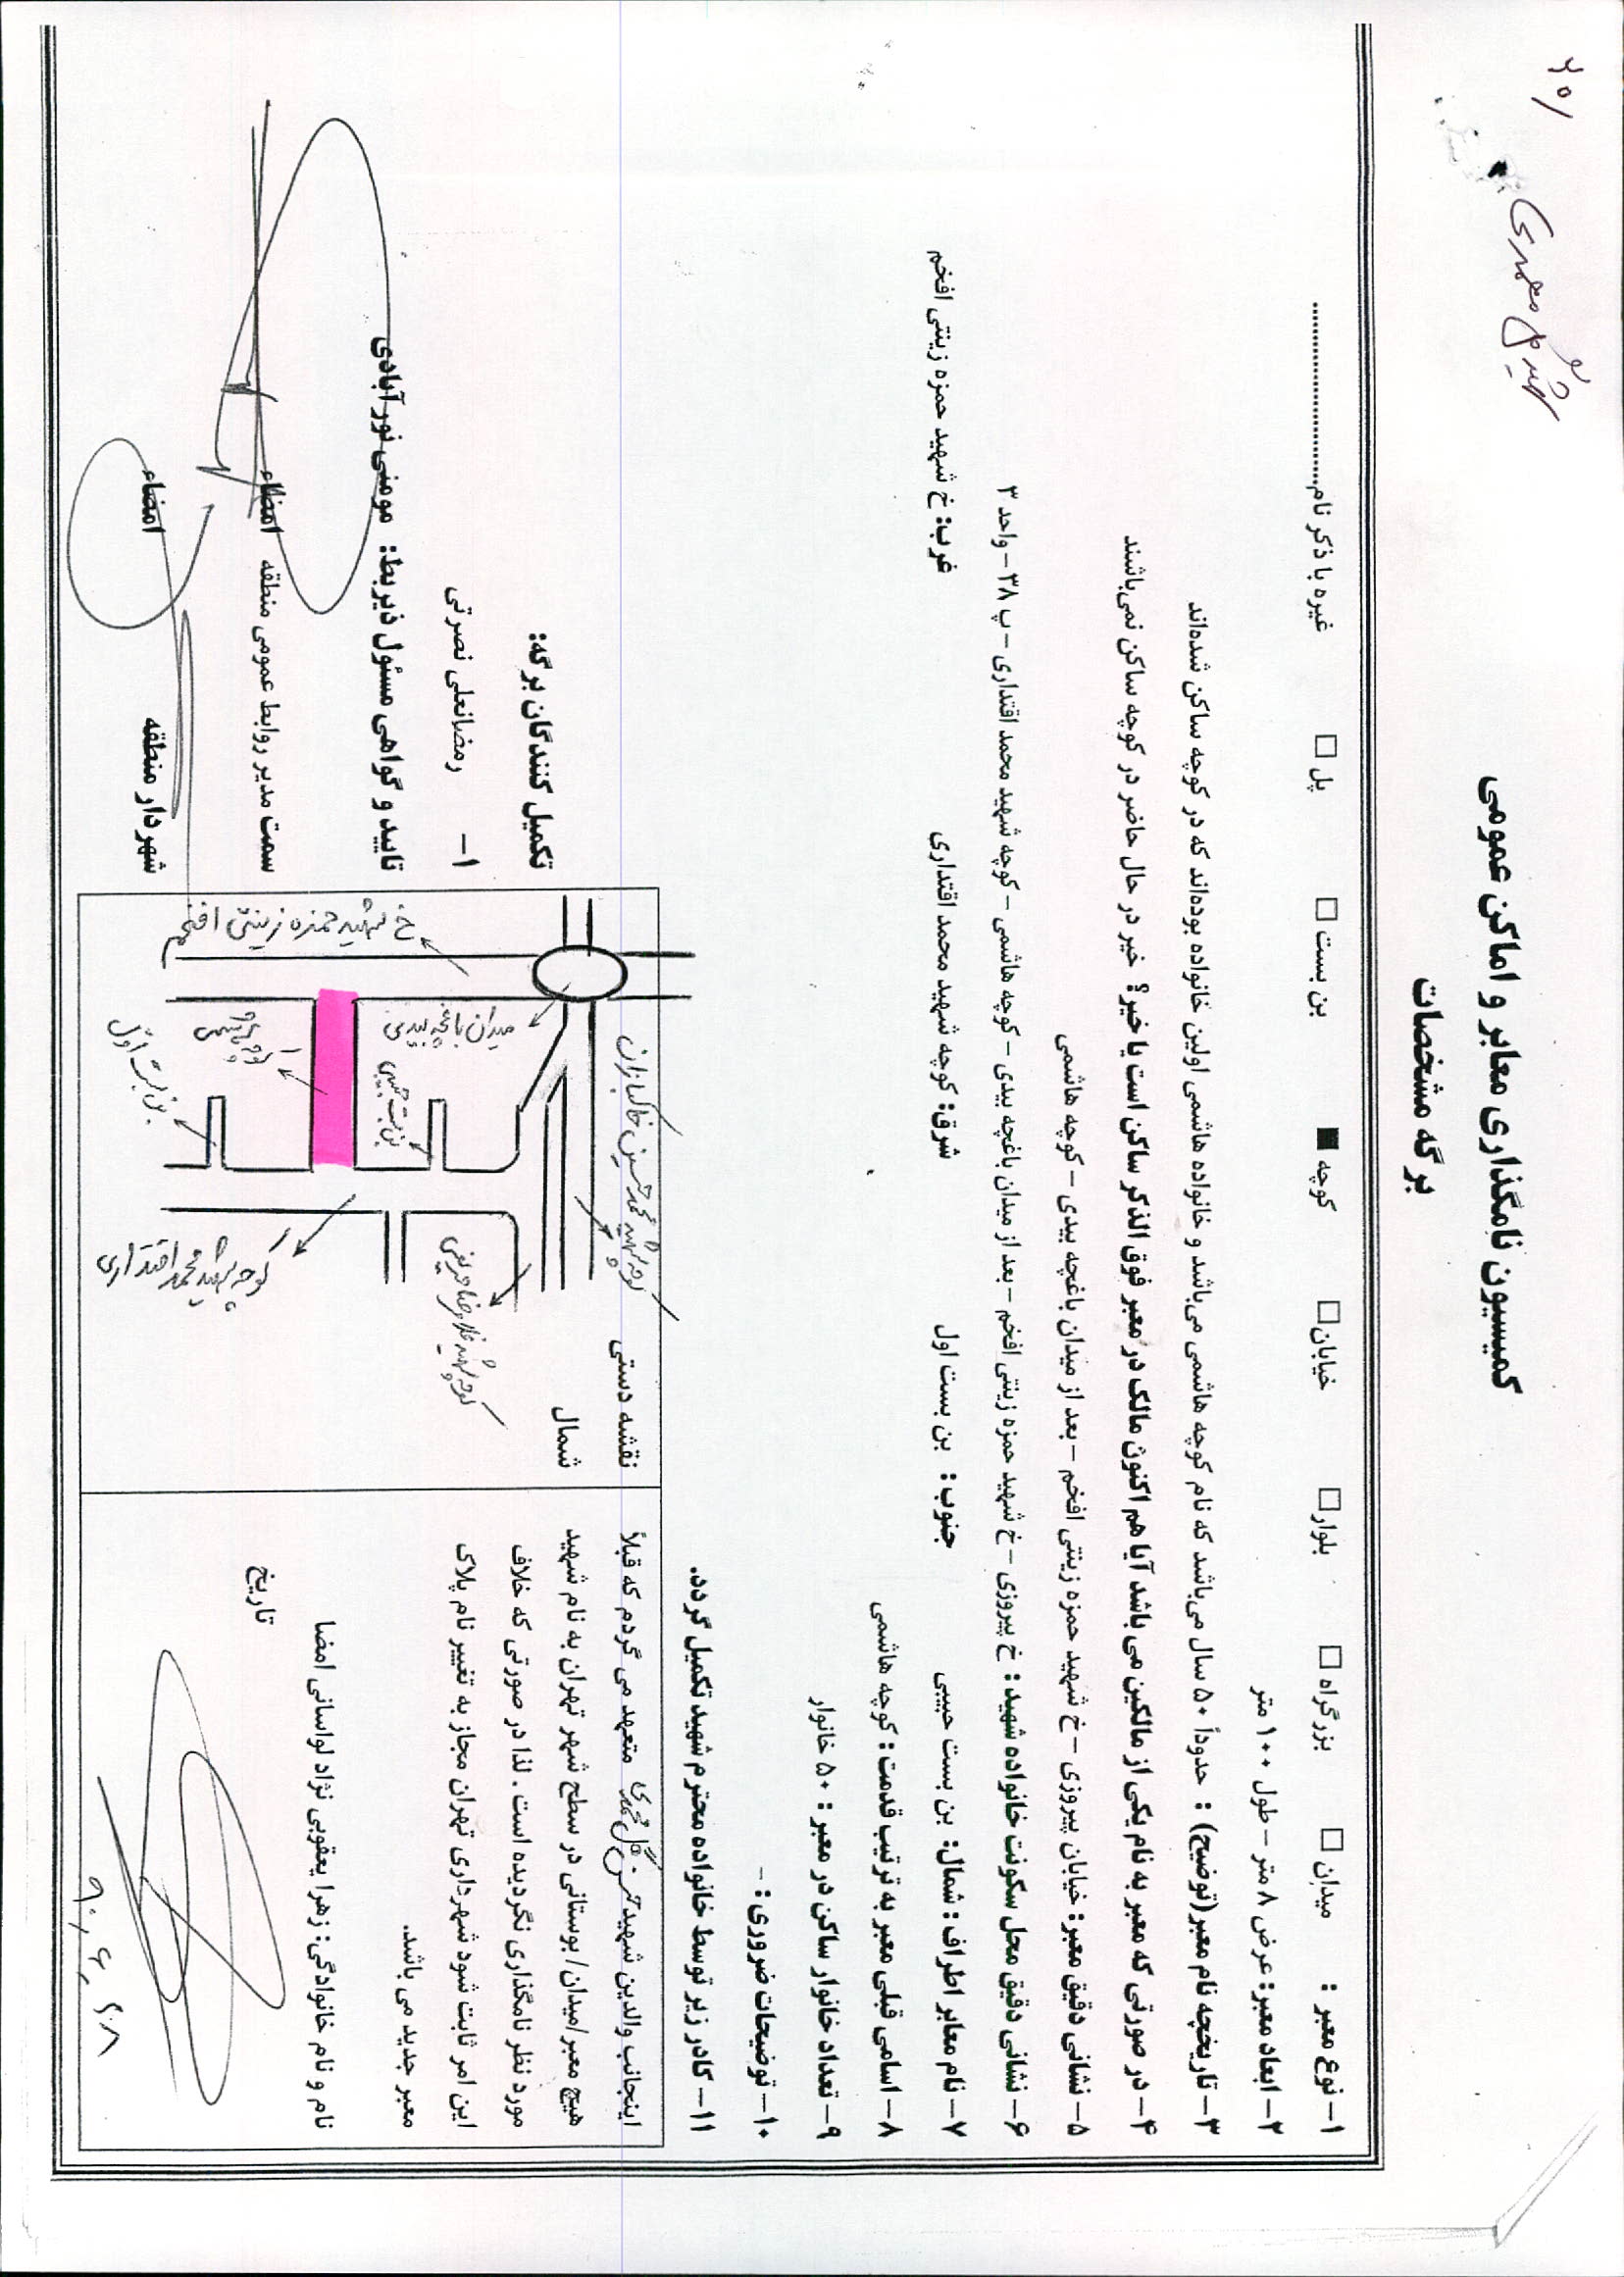 کمیسیون نامگذاری معابر و اماکن عمومی
برگه مشخصات
۱- نوع معبر : میدان □ بزرگراه □ بلوار□ خیابان□ کوچه ■ بن بست □ پل □ غیره با ذکر نام..............................
۲- ابعاد معبر: عرض ۸ متر – طول ۱۰۰ متر
۳- تاریخچه نام معبر(توضیح) : حدوداً ۵۰ سال می‌باشد که نام کوچه هاشمی می‌باشد و خانواده هاشمی اولین خانواده بوده‌اند که در کوچه ساکن شده‌اند
۴- در صورتی که معبر به نام یکی از مالکین می باشد آیا هم اکنون مالک در معبر فوق الذکر ساکن است یا خیر؟ خیر در حال حاضر در کوچه ساکن نمی‌باشند
۵- نشانی دقیق معبر: خیابان پیروزی – خ شهید حمزه زینتی افخم – بعد از میدان باغچه بیدی – کوچه هاشمی
۶- نشانی دقیق محل سکونت خانواده شهید: خ پیروزی – خ شهید حمزه زینتی افخم – بعد از میدان باغچه بیدی – کوچه هاشمی – کوچه شهید محمد اقتداری – پ ۳۸ – واحد ۳
۷- نام معابر اطراف : شمال: بن بست حبیبی جنوب : بن بست اول شرق: کوچه شهید محمد اقتداری غرب: خ شهید حمزه زینتی افخم
۸- اسامی قبلی معبر به ترتیب قدمت : کوچه هاشمی
۹- تعداد خانوار ساکن در معبر : ۵۰ خانوار
۱۰- توضیحات ضروری : -
۱۱- کادر زیر توسط خانواده محترم شهید تکمیل گردد.
اینجانب والدین شهید متعهد می گردم که قبلاً
هیچ معبر/میدان/ بوستانی در سطح شهر تهران به نام شهید
مورد نظر نامگذاری نگردیده است . لذا در صورتی که خلاف
این امر ثابت شود شهرداری تهران مجاز به تغییر نام پلاک
معبر جدید می باشد.
نام و نام خانوادگی: زهرا یعقوبی نژاد لواسانی امضا
تاریخ
۹۰,۶,۲۸
نقشه دستی
شمال
کوچه شهید محمدحسین خاکبازان
میدان باغچه بیدی
خ شهید حمزه زینتی افخم
بن بست حبیبی
کوچه هاشمی
بن بست اول
کوچه شهید محمد اقتداری
تکمیل کنندگان برگه:
۱- رمضانعلی نصرتی
تایید و گواهی مسئول ذیربط: مومنی نورآبادی
سمت مدیر روابط عمومی منطقه امضاء
شهردار منطقه امضاء